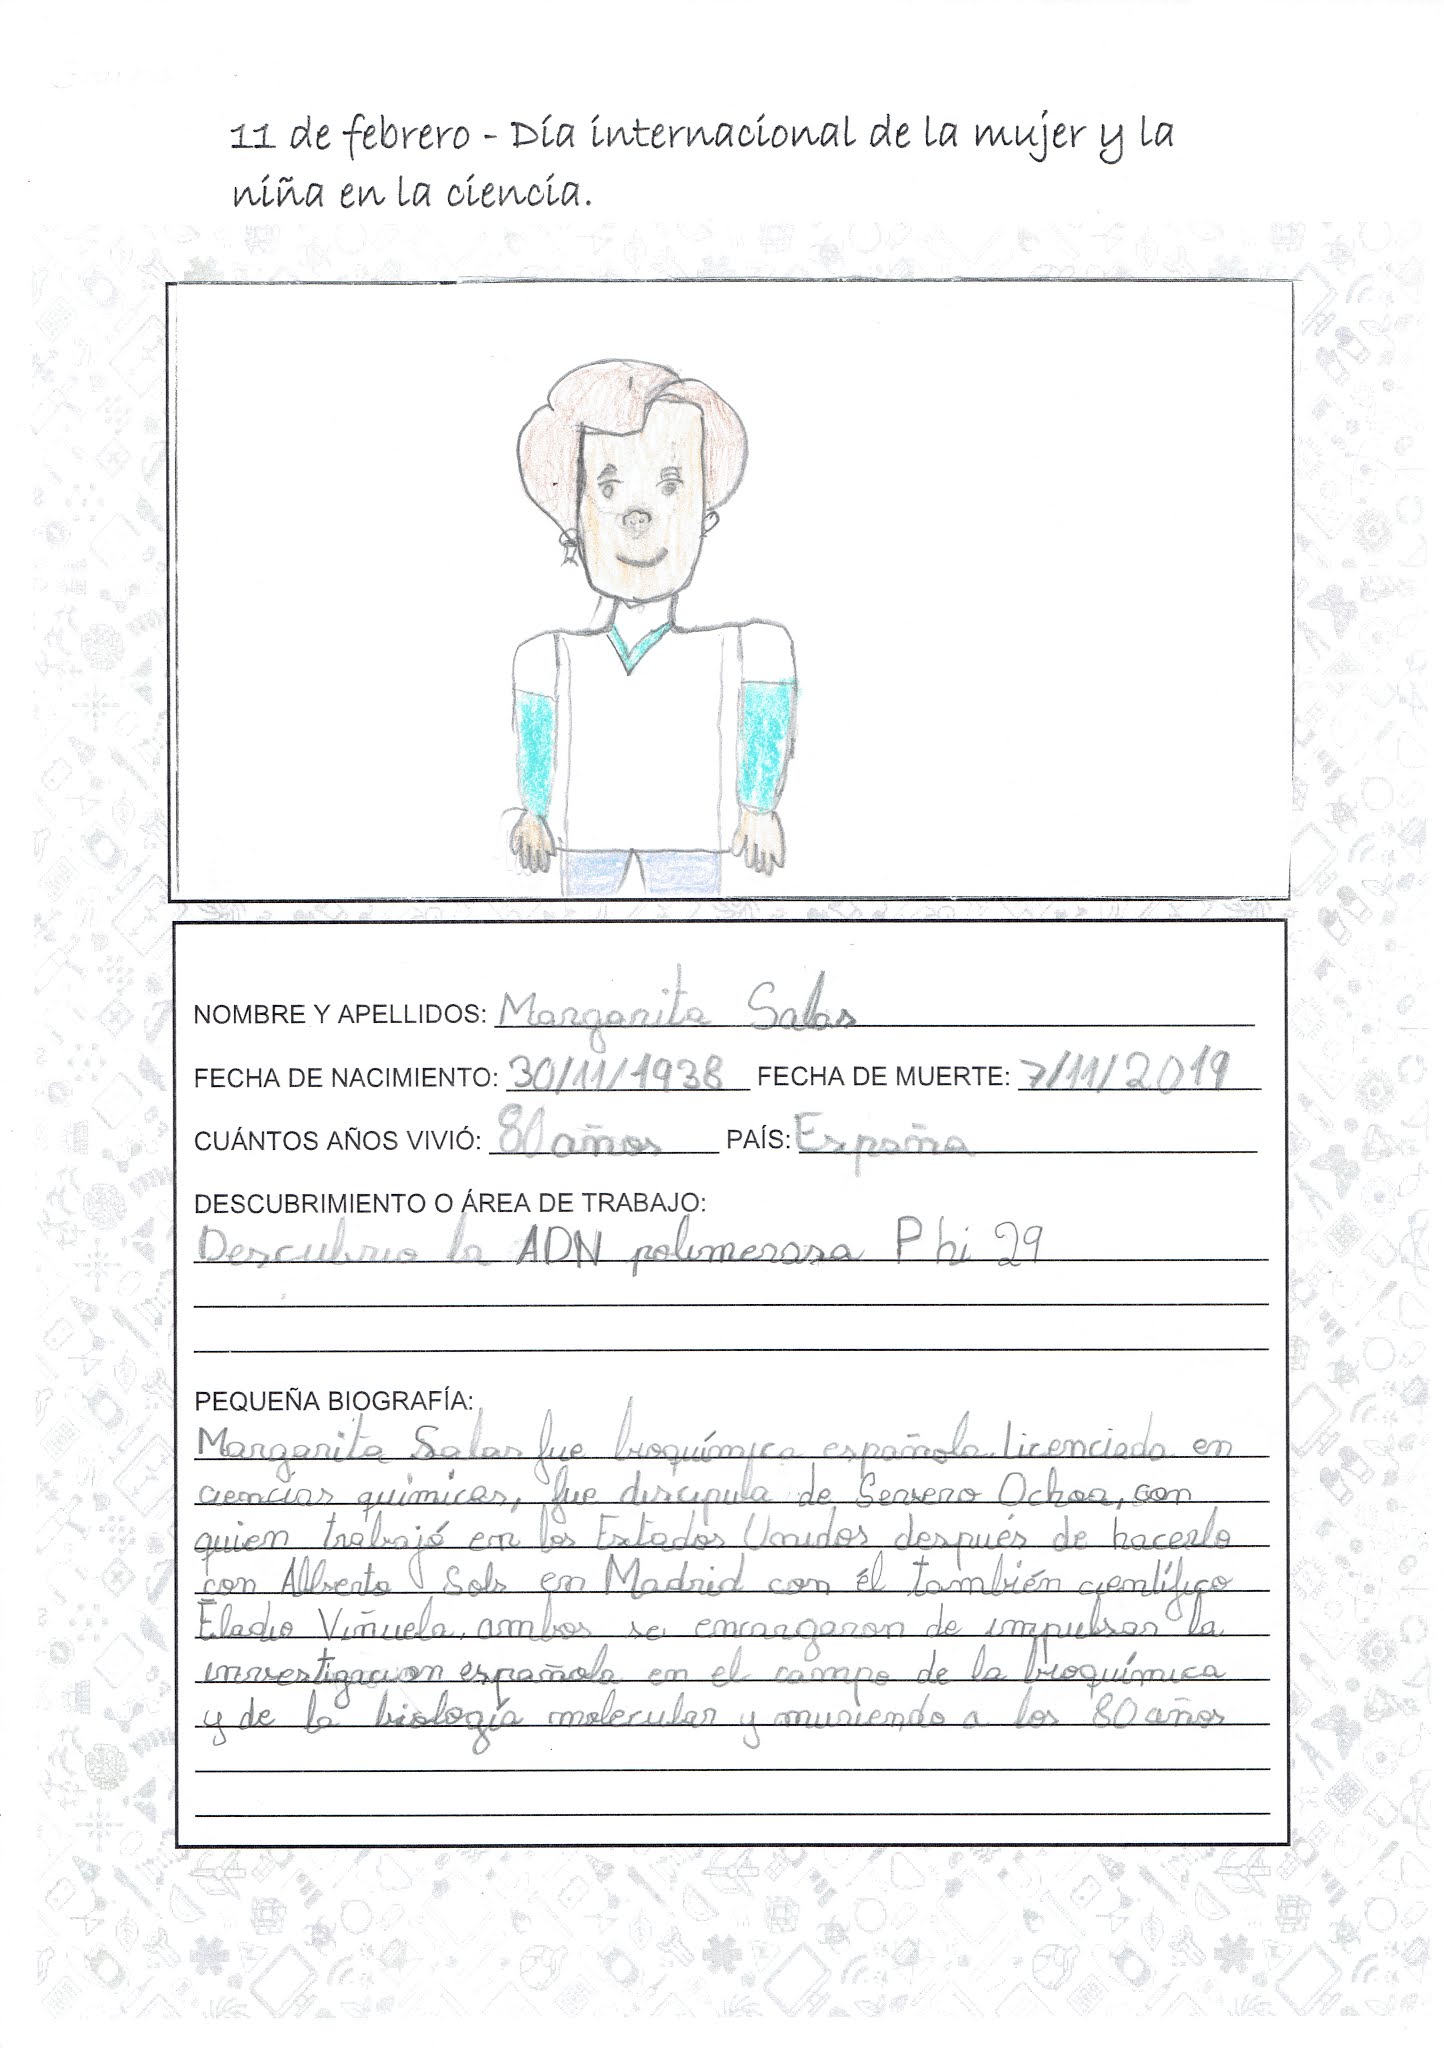 11 de febrero - Día internacional de la mujer y la
niña en la ciencia.
NOMBRE Y APELLIDOS: Margarita Salas
FECHA DE NACIMIENTO: 30/11/1938 FECHA DE MUERTE: 7/11/2019
CUÁNTOS AÑOS VIVIÓ: 80 años PAÍS: España
DESCUBRIMIENTO O ÁREA DE TRABAJO:
Descubrio la ADN polimerasa Phi 29
PEQUEÑA BIOGRAFÍA:
Margarita Salas fue bioquímica española. licenciada en
ciencias químicas, fue discipula de Severo Ochoa, con
quien trabajó en los Estados Unidos después de hacerlo
con Alberto Sols en Madrid con él también científico
Eladio Viñuela. ambos se encargaron de impulsar la
investigacion española en el campo de la bioquímica
y de la biología molecular y muriendo a los 80 años